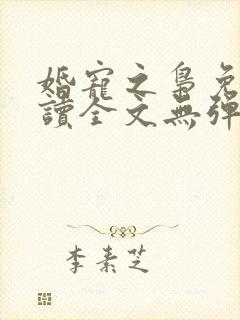 婚寵之梟免
讀全文無彈
李素芝